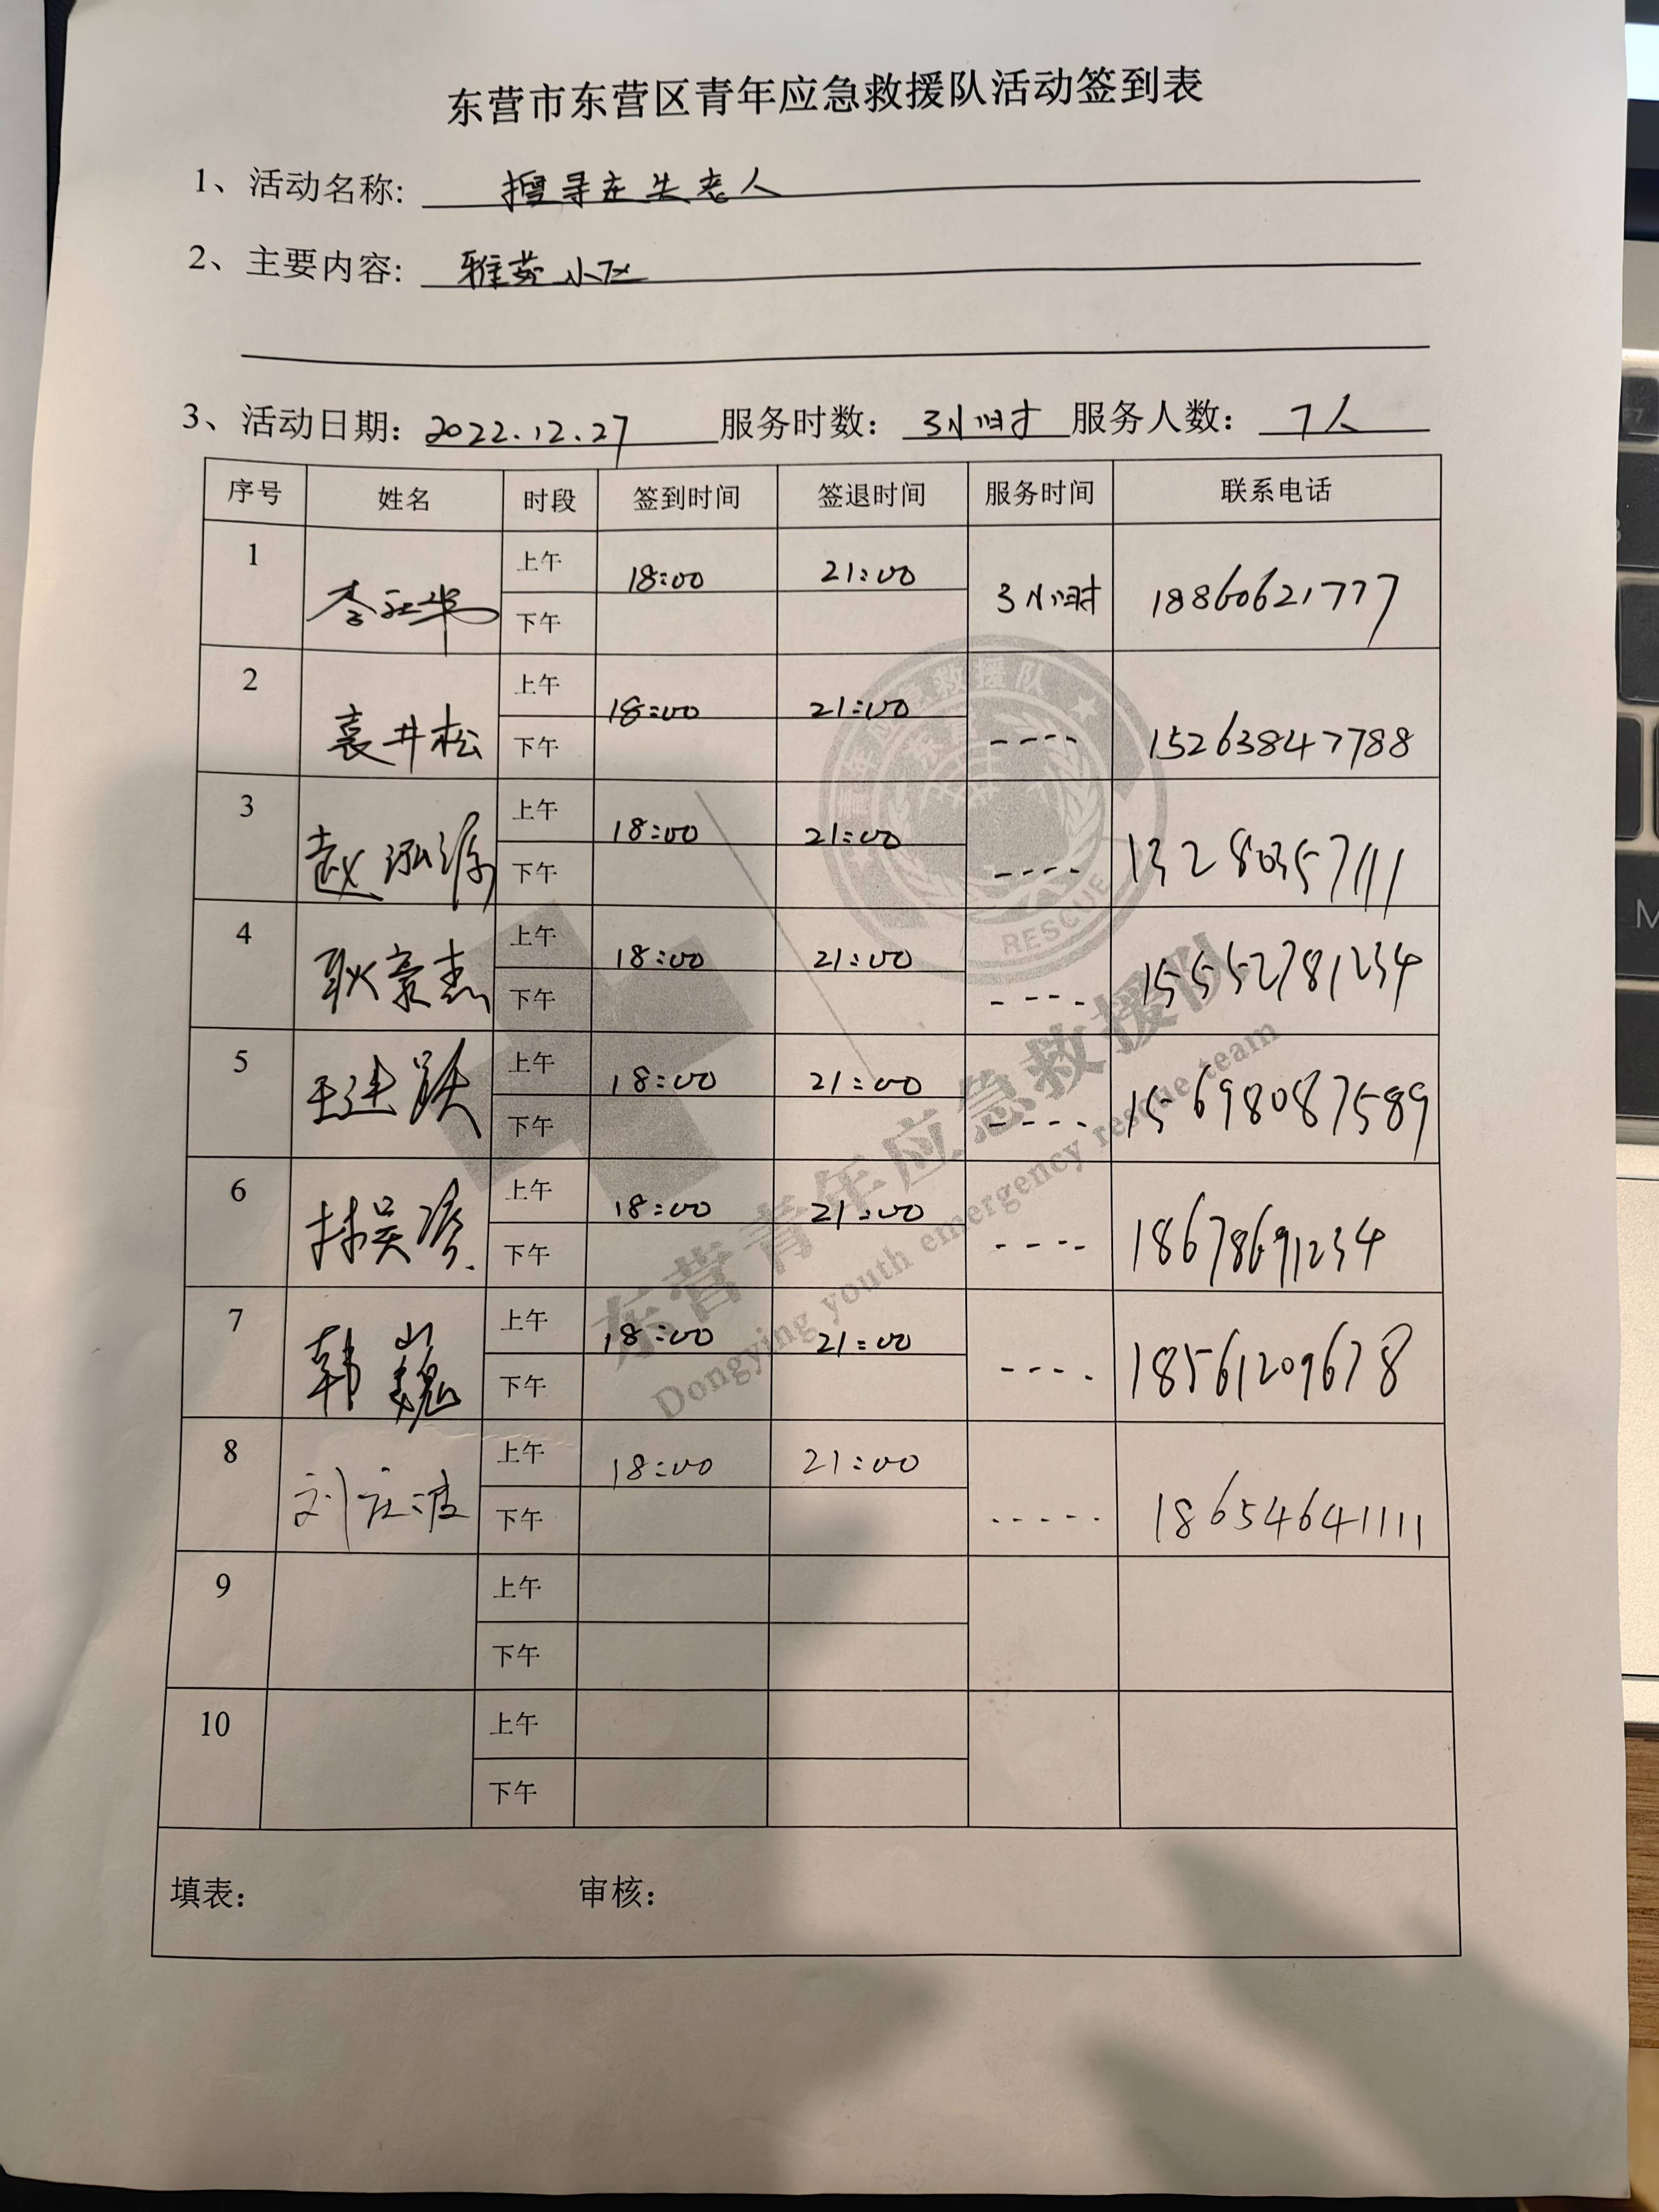 东营市东营区青年应急救援队活动签到表
1、活动名称: 搜寻走失老人
2、主要内容: 雅苑小区
3、活动日期: 2022.12.27 服务时数: 3小时 服务人数: 7人
序号 姓名 时段 签到时间 签退时间 服务时间 联系电话
1 上午 18:00 21:00 3小时 18860621777
下午
2 袁井松 上午 18:00 21:00 ---- 15263847788
下午
3 赵泓源 上午 18:00 21:00 ---- 13280357111
下午
4 耿豪杰 上午 18:00 21:00 ---- 15552781234
下午
5 王建跃 上午 18:00 21:00 ---- 15698087589
下午
6 上午 18:00 21:00 ---- 18678691234
下午
7 韩巍 上午 18:00 21:00 ---- 18561209678
下午
8 上午 18:00 21:00 ----- 18654641111
下午
9 上午
下午
10 上午
下午
填表: 审核:
青年应急救援队
RESCUE
东营青年应急救援队
Dongying youth emergency rescue team